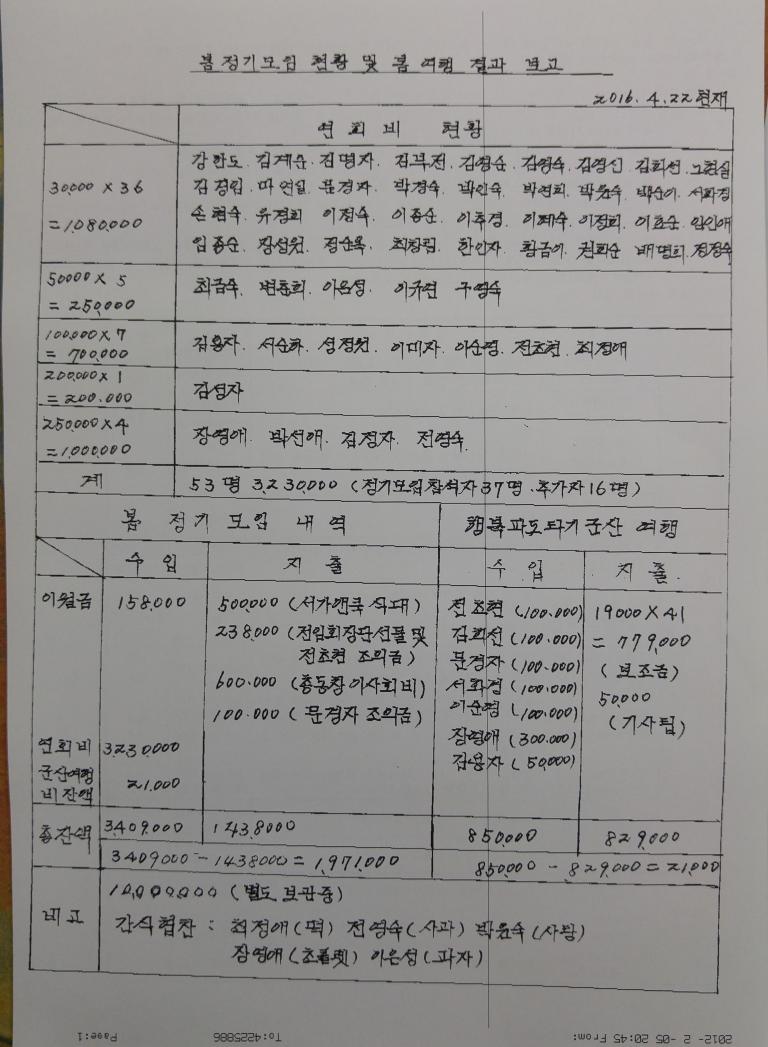 봄 정기모임 현황 및 봄 여행 결과 보고
2016. 4. 22 현재
연 회 비 현황
30,000 × 36
= 1,080,000
강한도. 김계순. 김명자. 김부전. 김영순. 김영숙. 김영신. 김희선. 노현실
김정임. 마연실. 문경자. 박경숙. 박인숙. 박연희. 박윤숙. 박순이. 서화경
손현숙. 유경희. 이정숙. 이종순. 이추경. 이혜숙. 이정희. 이효순. 임인애
임종순. 장성원. 정순옥. 최창림. 한인자. 황금이. 권화순. 배명희. 정정숙
50000 × 5
= 250,000
최금숙. 변춘희. 이은성. 이규연 구영숙
100,000 × 7
= 700,000
김용자. 서순화. 성정원. 이미자. 이순영. 전초현. 최정애
200,000 × 1
= 200.000
김성자
250,000 × 4
= 1,000,000
장영애. 박선애. 김정자. 전영숙.
계
53명 3,230,000 (정기모임참석자 37명. 추가자 16명)
봄 정기모임 내역
행복파도타기 군산 여행
수 입
지 출
수 입
지 출.
이월금
158,000
500,000 (서가앤쿡 식대)
238,000 (전임회장단선물 및
전초현 조의금)
600.000 (총동창이사회비)
100.000 (문경자 조의금)
전초현 (100.000)
김희선 (100.000)
문경자 (100.000)
서화경 (100.000)
이순영 (100.000)
장영애 (300.000)
김용자 (50,000)
19000 × 41
= 779,000
(보조금)
50,000
(기사팁)
연회비 3,230,000
군산여행
비 잔액
21.000
총잔액
3,409,000
1,438,000
850,000
829,000
3,409,000 - 1,438,000 = 1,971,000
850,000 - 829,000 = 21,000
비고
10,000,000 (별도 보관중)
간식협찬 : 최정애 (떡) 전영숙 (사과) 박윤숙 (사탕)
장영애 (초콜렛) 이은성 (과자)
2012- 2 -05 20:45 From:
To:4225886
Page:1